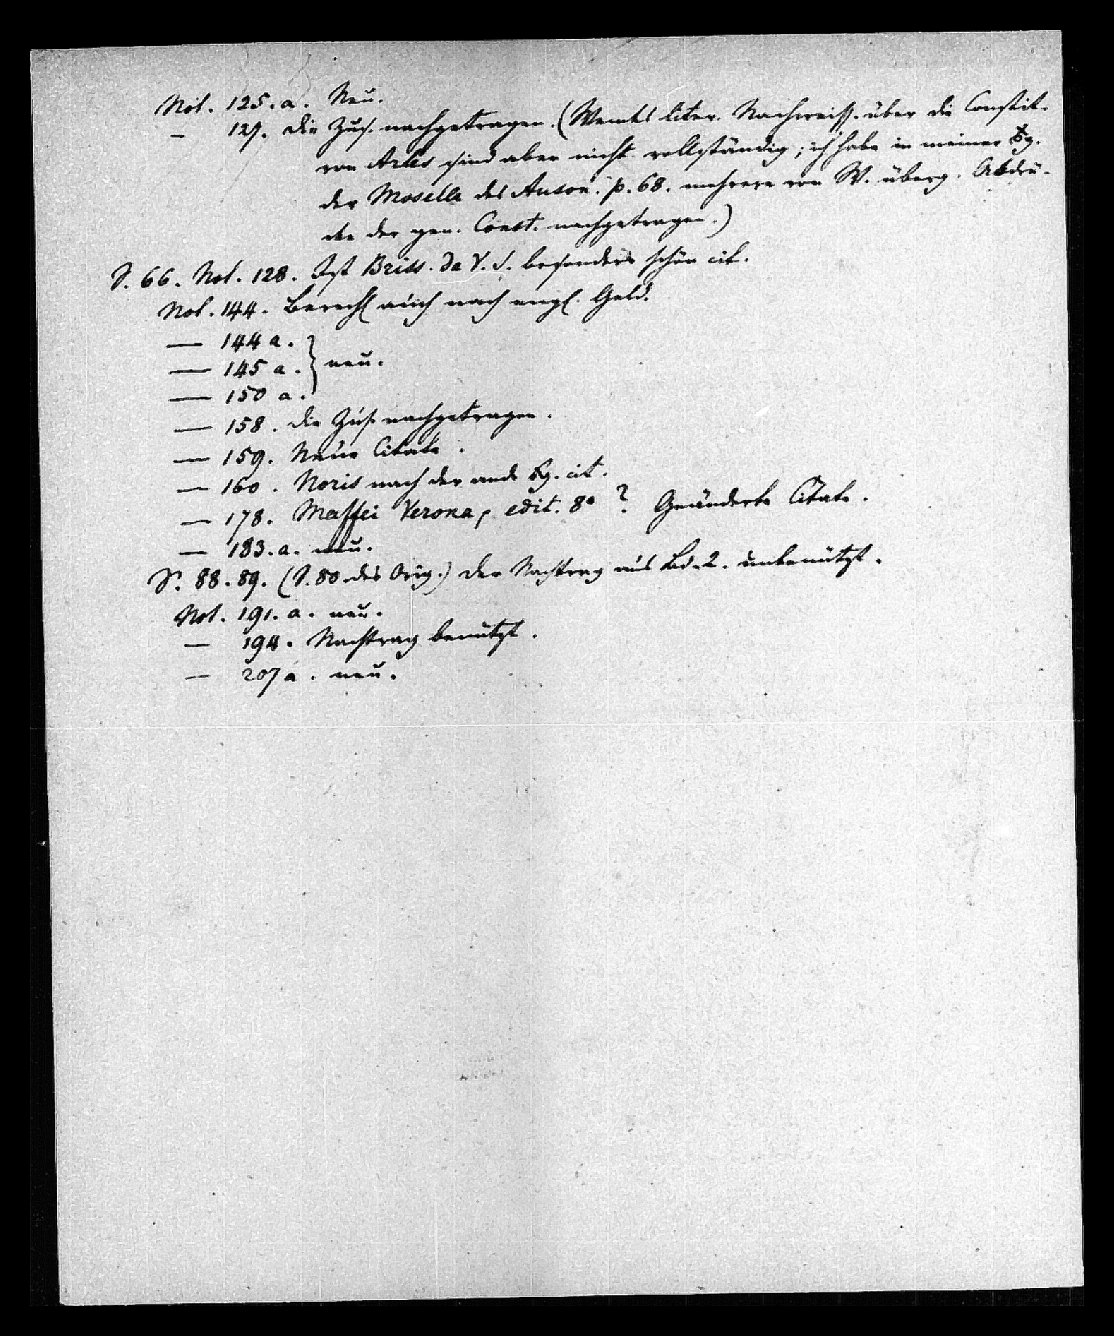 Not. 125.a. Neu.
— 127. die Zus. nachgetragen. (Wencks liter. Nachweiss. über die Constit.
von Arles sind aber nicht vollständig; ich habe in meiner Ag.
der Mosella des Auson. p. 68. mehrere von W. überg. Abdrü-
cke der gen. Const. nachgetragen.)
S. 66. Not. 128. Ist Briss. de V. S. besonders schön cit.
Not. 144. Berech. auch nach engl. Geld.
— 144 a.
— 145 a. } neu.
— 150 a.
— 158. die Zus. nachgetragen.
— 159. Neue Citate.
— 160. Noris nach der and. Ag. cit.
— 178. Maffei Verona, edit. 8° ? Geänderte Citate.
— 183.a. neu.
S. 88.89. (S. 80 des Orig.) der Nachtrag aus Bd. 2. unbenützt.
Not. 191.a. neu.
— 194. Nachtrag benützt.
— 207 a. neu.